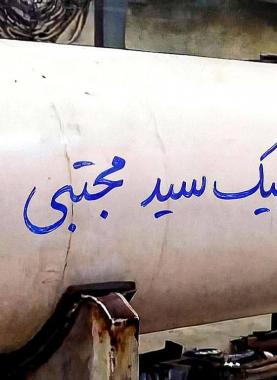 سید مجتبی